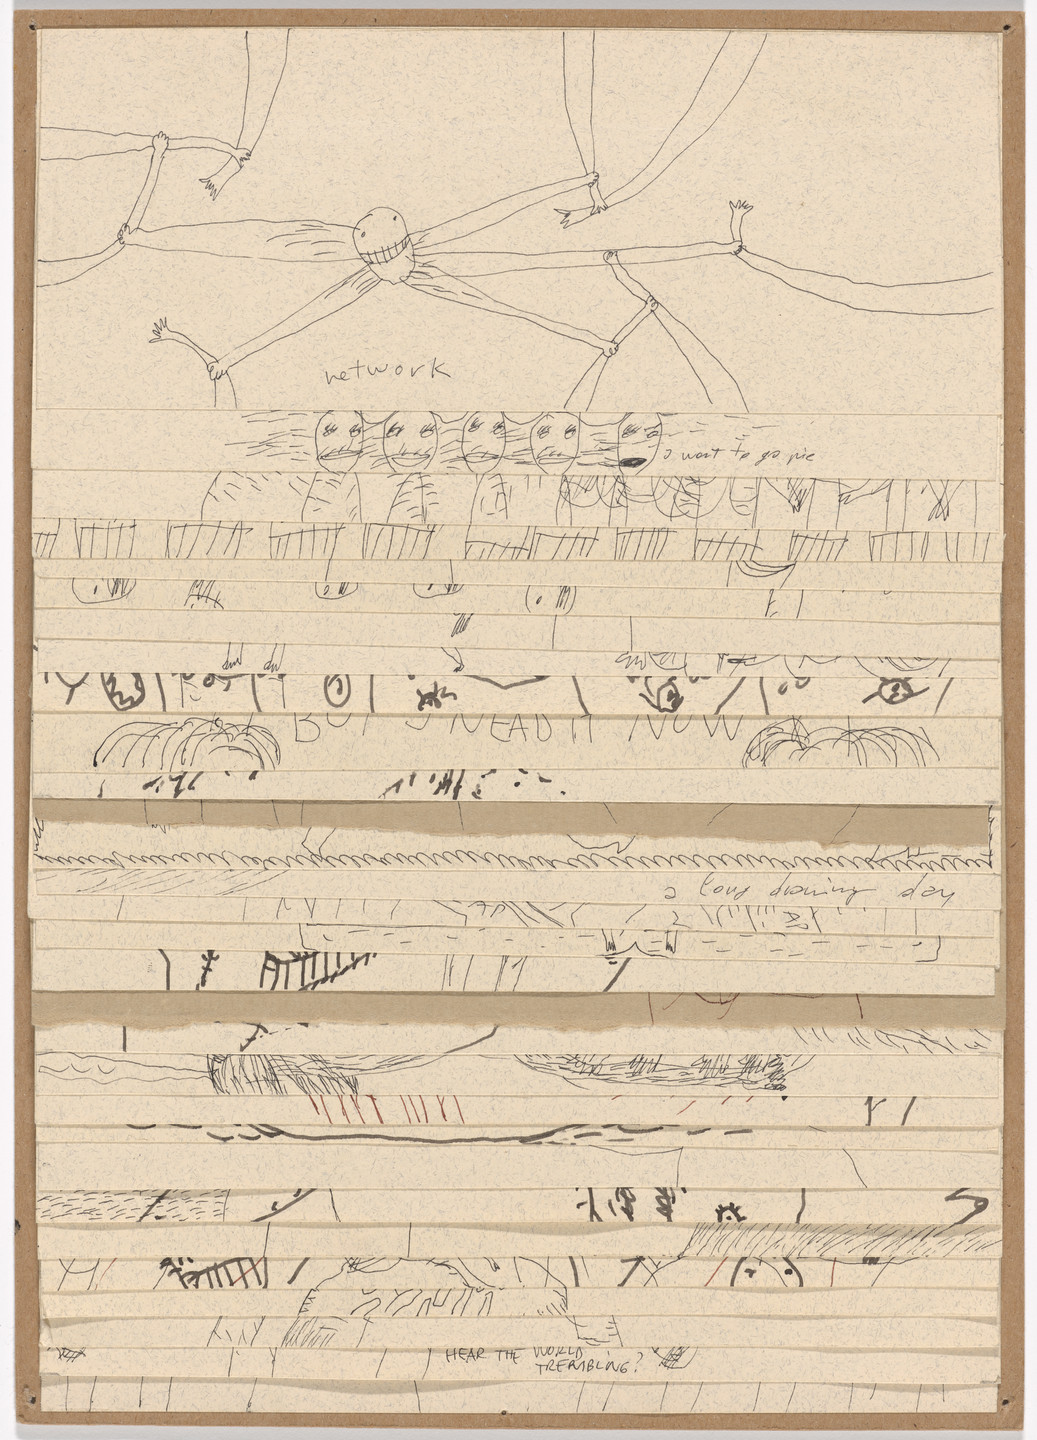 network
I want to go pie
BUT I NEAD IT NOW
a long drawing day
HEAR THE WORLD
TREMBLING?